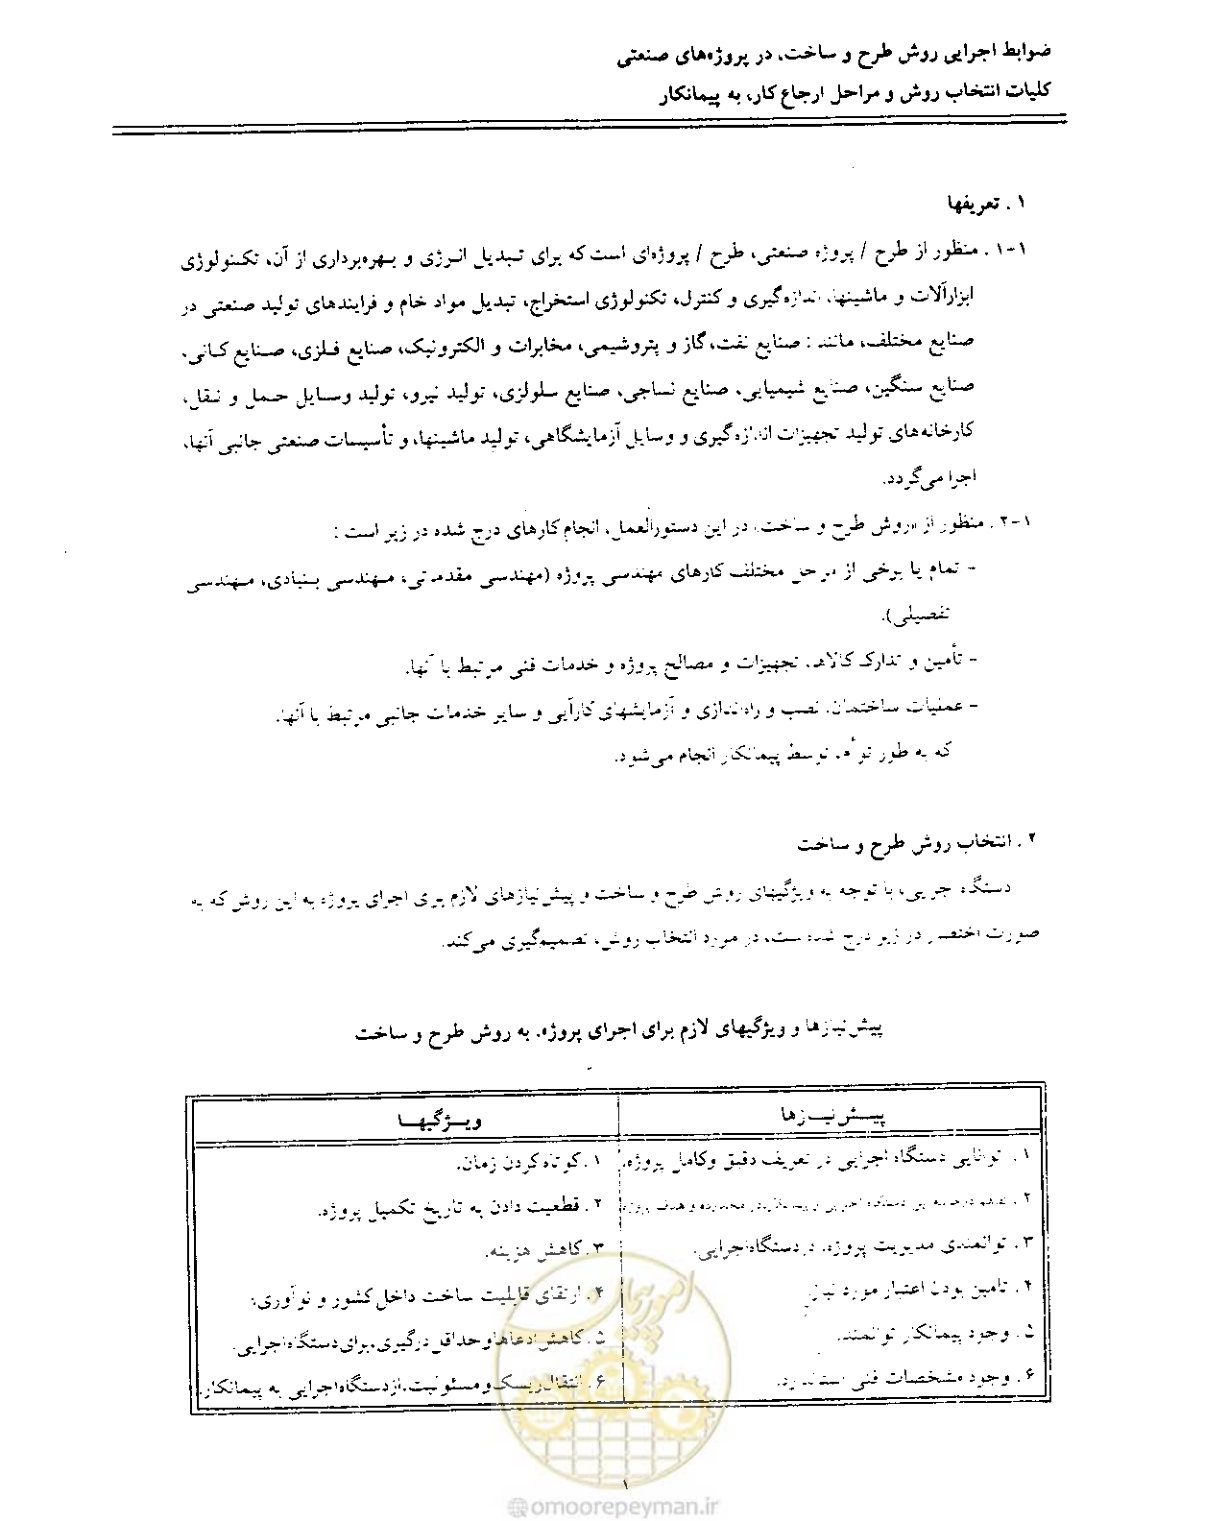 ضوابط اجرایی روش طرح و ساخت، در پروژه‌های صنعتی
کلیات انتخاب روش و مراحل ارجاع کار، به پیمانکار
۱ . تعریفها
۱-۱ . منظور از طرح / پروژه صنعتی، طرح / پروژه‌ای است که برای تبدیل انرژی و بهره‌برداری از آن، تکنولوژی
ابزارآلات و ماشینها، اندازه‌گیری و کنترل، تکنولوژی استخراج، تبدیل مواد خام و فرایندهای تولید صنعتی در
صنایع مختلف، مانند : صنایع نفت، گاز و پتروشیمی، مخابرات و الکترونیک، صنایع فلزی، صنایع کانی،
صنایع سنگین، صنایع شیمیایی، صنایع نساجی، صنایع سلولزی، تولید نیرو، تولید وسایل حمل و نقل،
کارخانه‌های تولید تجهیزات اندازه‌گیری و وسایل آزمایشگاهی، تولید ماشینها، و تأسیسات صنعتی جانبی آنها،
اجرا می‌گردد.
۱-۲ . منظور از «روش طرح و ساخت» در این دستورالعمل، انجام کارهای درج شده در زیر است :
- تمام یا برخی از مراحل مختلف کارهای مهندسی پروژه (مهندسی مقدماتی، مهندسی بنیادی، مهندسی
تفصیلی).
- تأمین و تدارک کالاها، تجهیزات و مصالح پروژه و خدمات فنی مرتبط با آنها.
- عملیات ساختمان، نصب و راه‌اندازی و آزمایشهای کارآیی و سایر خدمات جانبی مرتبط با آنها.
که به طور توأم، توسط پیمانکار انجام می‌شود.
۲ . انتخاب روش طرح و ساخت
دستگاه اجرایی، با توجه به ویژگیهای روش طرح و ساخت و پیش‌نیازهای لازم برای اجرای پروژه به این روش که به
صورت اختصار در زیر درج شده است، در مورد انتخاب روش، تصمیم‌گیری می‌کند.
پیش‌نیازها و ویژگیهای لازم برای اجرای پروژه، به روش طرح و ساخت
پیش‌نیازها
ویژگیها
۱. توانایی دستگاه اجرایی در تعریف دقیق و کامل پروژه.
۱. کوتاه کردن زمان.
۲. دستگاه اجرایی و پیمانکار در محدوده و هدف پروژه.
۲. قطعیت دادن به تاریخ تکمیل پروژه.
۳. توانمندی مدیریت پروژه، در دستگاه اجرایی.
۳. کاهش هزینه.
۴. تامین بودن اعتبار مورد نیاز.
۴. ارتقای قابلیت ساخت داخل کشور و نوآوری.
۵. وجود پیمانکار توانمند.
۵. کاهش ادعاها و حداقل درگیری، برای دستگاه اجرایی.
۶. وجود مشخصات فنی استاندارد.
۶. انتقال ریسک و مسئولیت، از دستگاه اجرایی به پیمانکار.
امور پیمان
۱
@omoorepeyman.ir